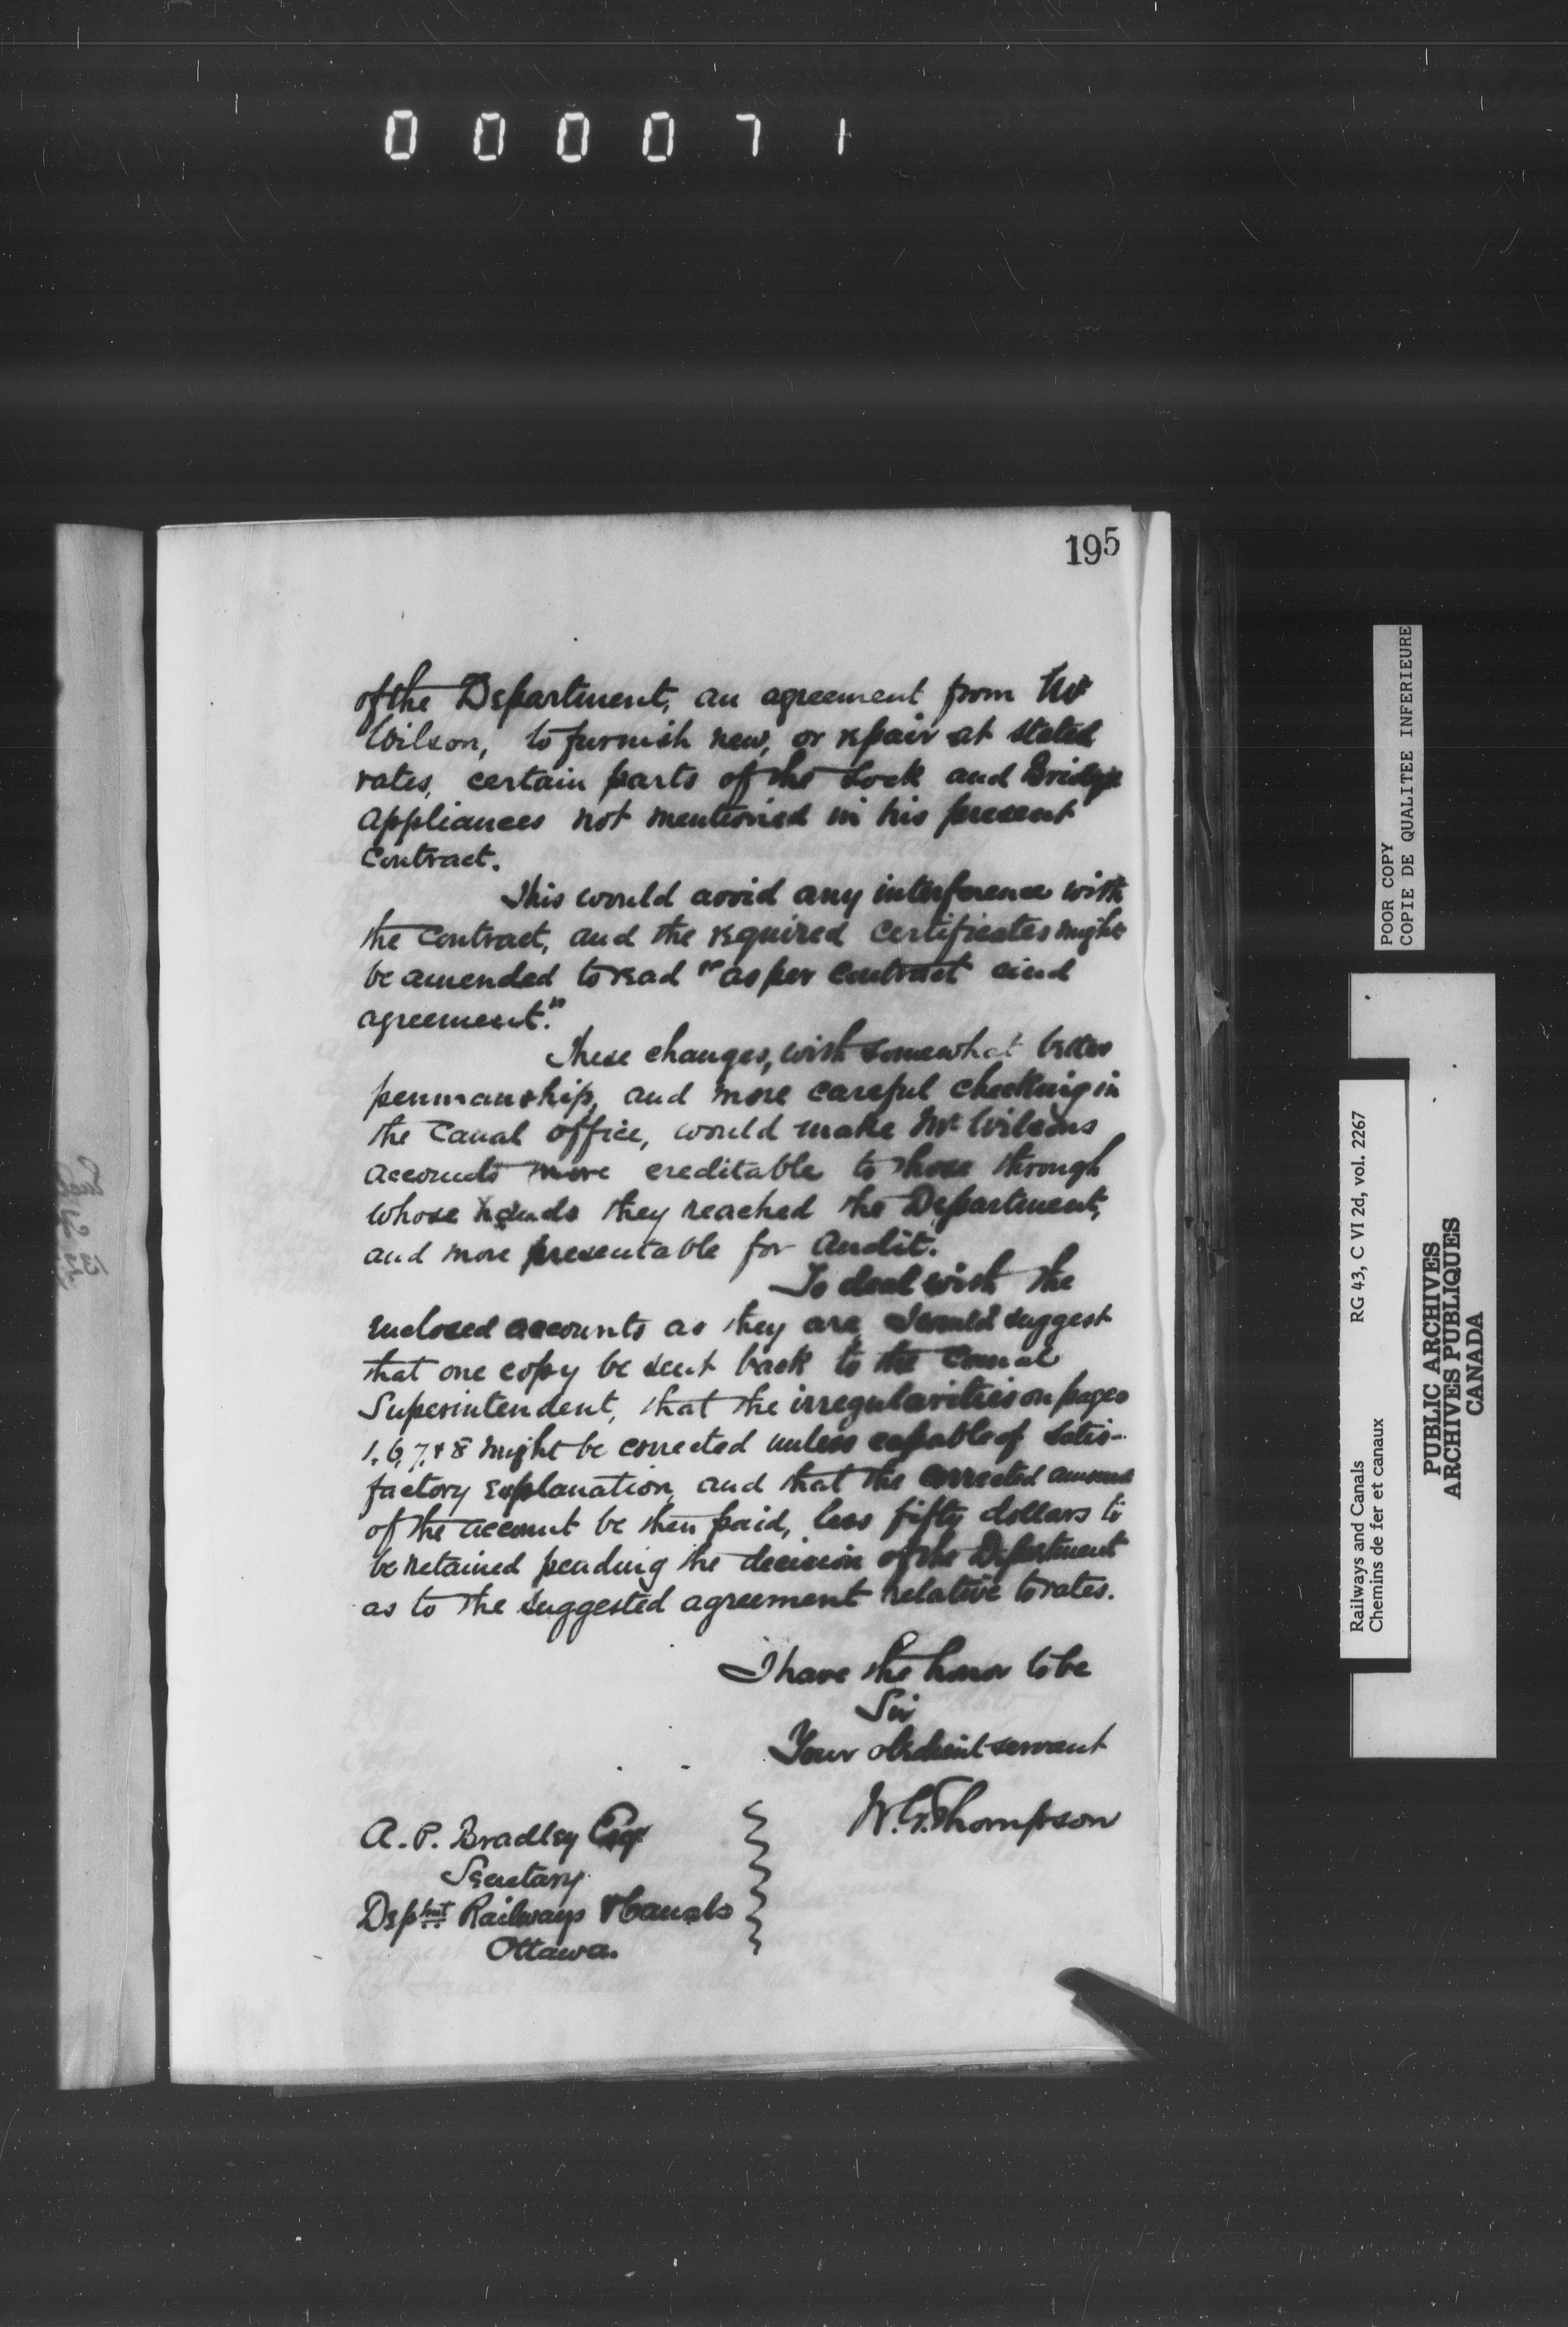 000071
195
of the Department, an agreement from Mr
Wilson, to furnish new, or repair at stated
rates, certain parts of the Lock and Bridge
Appliances not mentioned in his present
Contract.
This would avoid any interference with
the Contract, and the required Certificates might
be amended to read "as per Contract and
agreement."
These changes, with somewhat better
penmanship, and more careful checking in
the Canal Office, would make Mr Wilsons
accounts more creditable to those through
whose hands they reached the Department,
and more presentable for Audit.
To deal with the
enclosed accounts as they are I would suggest
that one copy be sent back to the Canal
Superintendent, that the irregularities on pages
1, 6, 7, & 8 might be corrected unless capable of satis-
factory explanation, and that the corrected amount
of the account be then paid, less fifty dollars to
be retained pending the decision of the Department
as to the suggested agreement relative to rates.
I have the honor to be
Sir
Your obedient servant
W. G. Thompson
A. P. Bradley Esqr
Secretary
Depmt Railways & Canals
Ottawa.
POOR COPY
COPIE DE QUALITEE INFERIEURE
Railways and Canals RG 43, C VI 2d, vol. 2267
Chemins de fer et canaux
PUBLIC ARCHIVES
ARCHIVES PUBLIQUES
CANADA